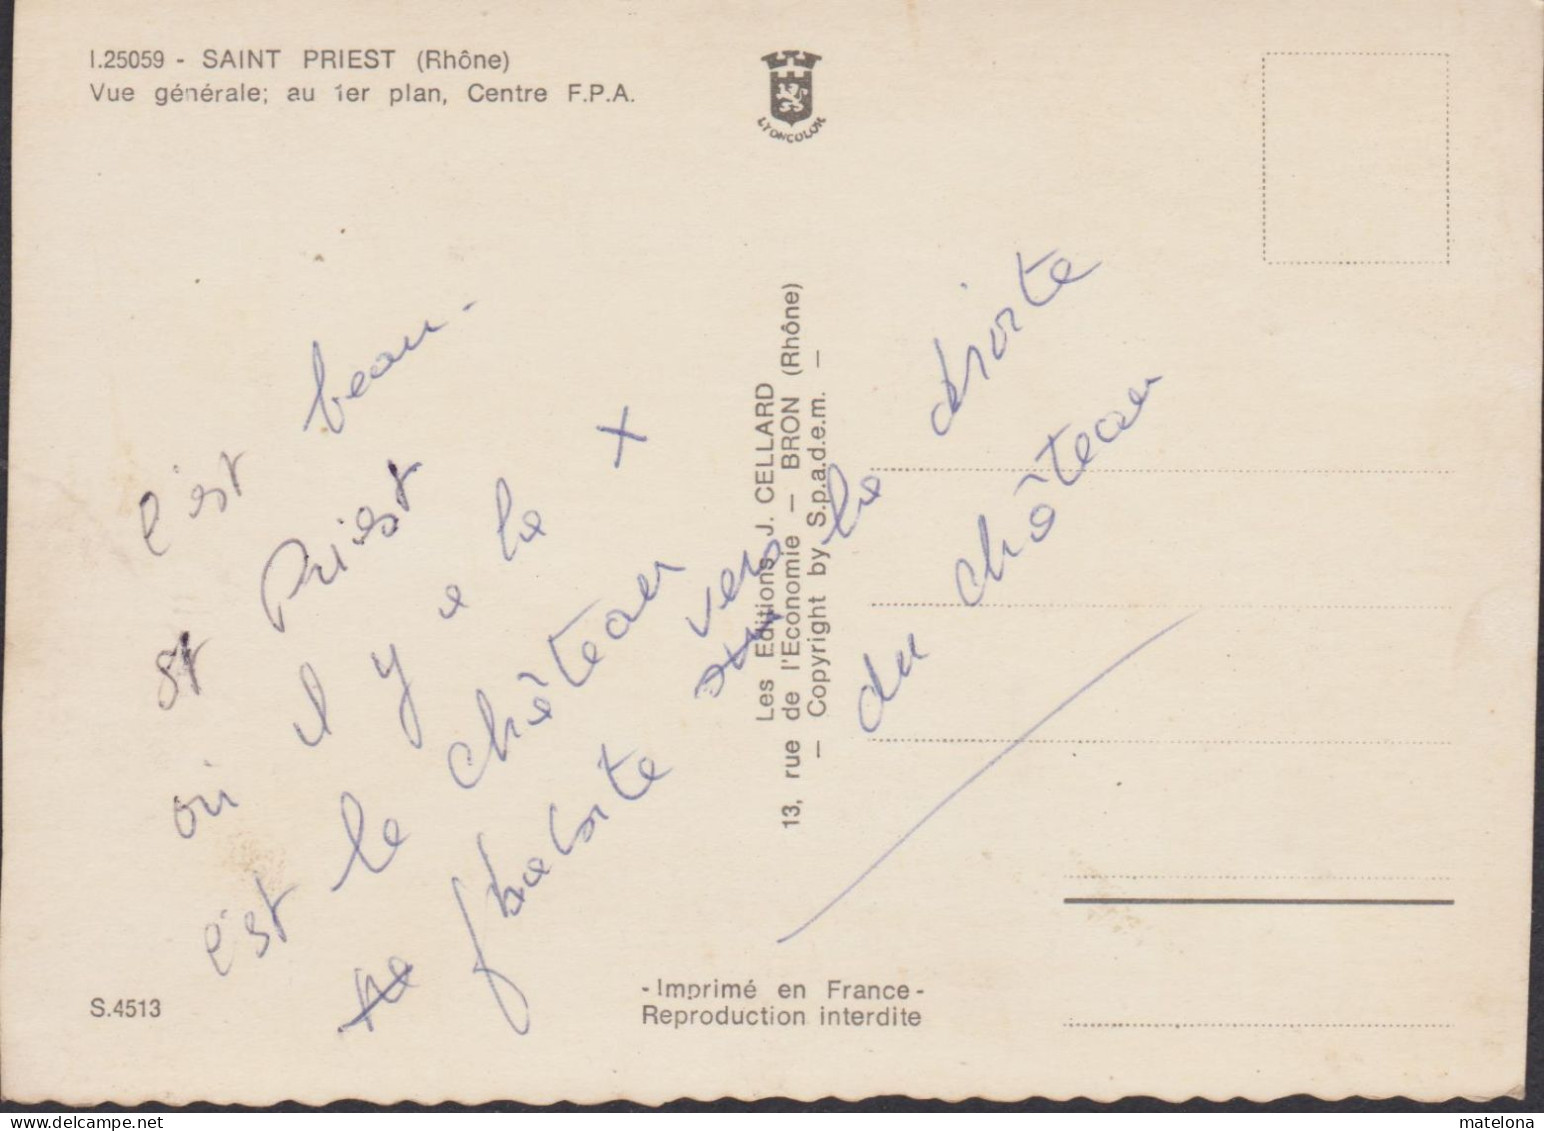 I.25059 - SAINT PRIEST (Rhône)
Vue générale; au 1er plan, Centre F.P.A.
LYONCOLOR
c'est beau.
St Priest
où il y a la x
c'est le château
j'habite vers la droite
du château
Les Editions J. CELLARD
13, rue de l'Economie - BRON (Rhône)
- Copyright by S.p.a.d.e.m. -
S.4513
- Imprimé en France -
Reproduction interdite
matelona